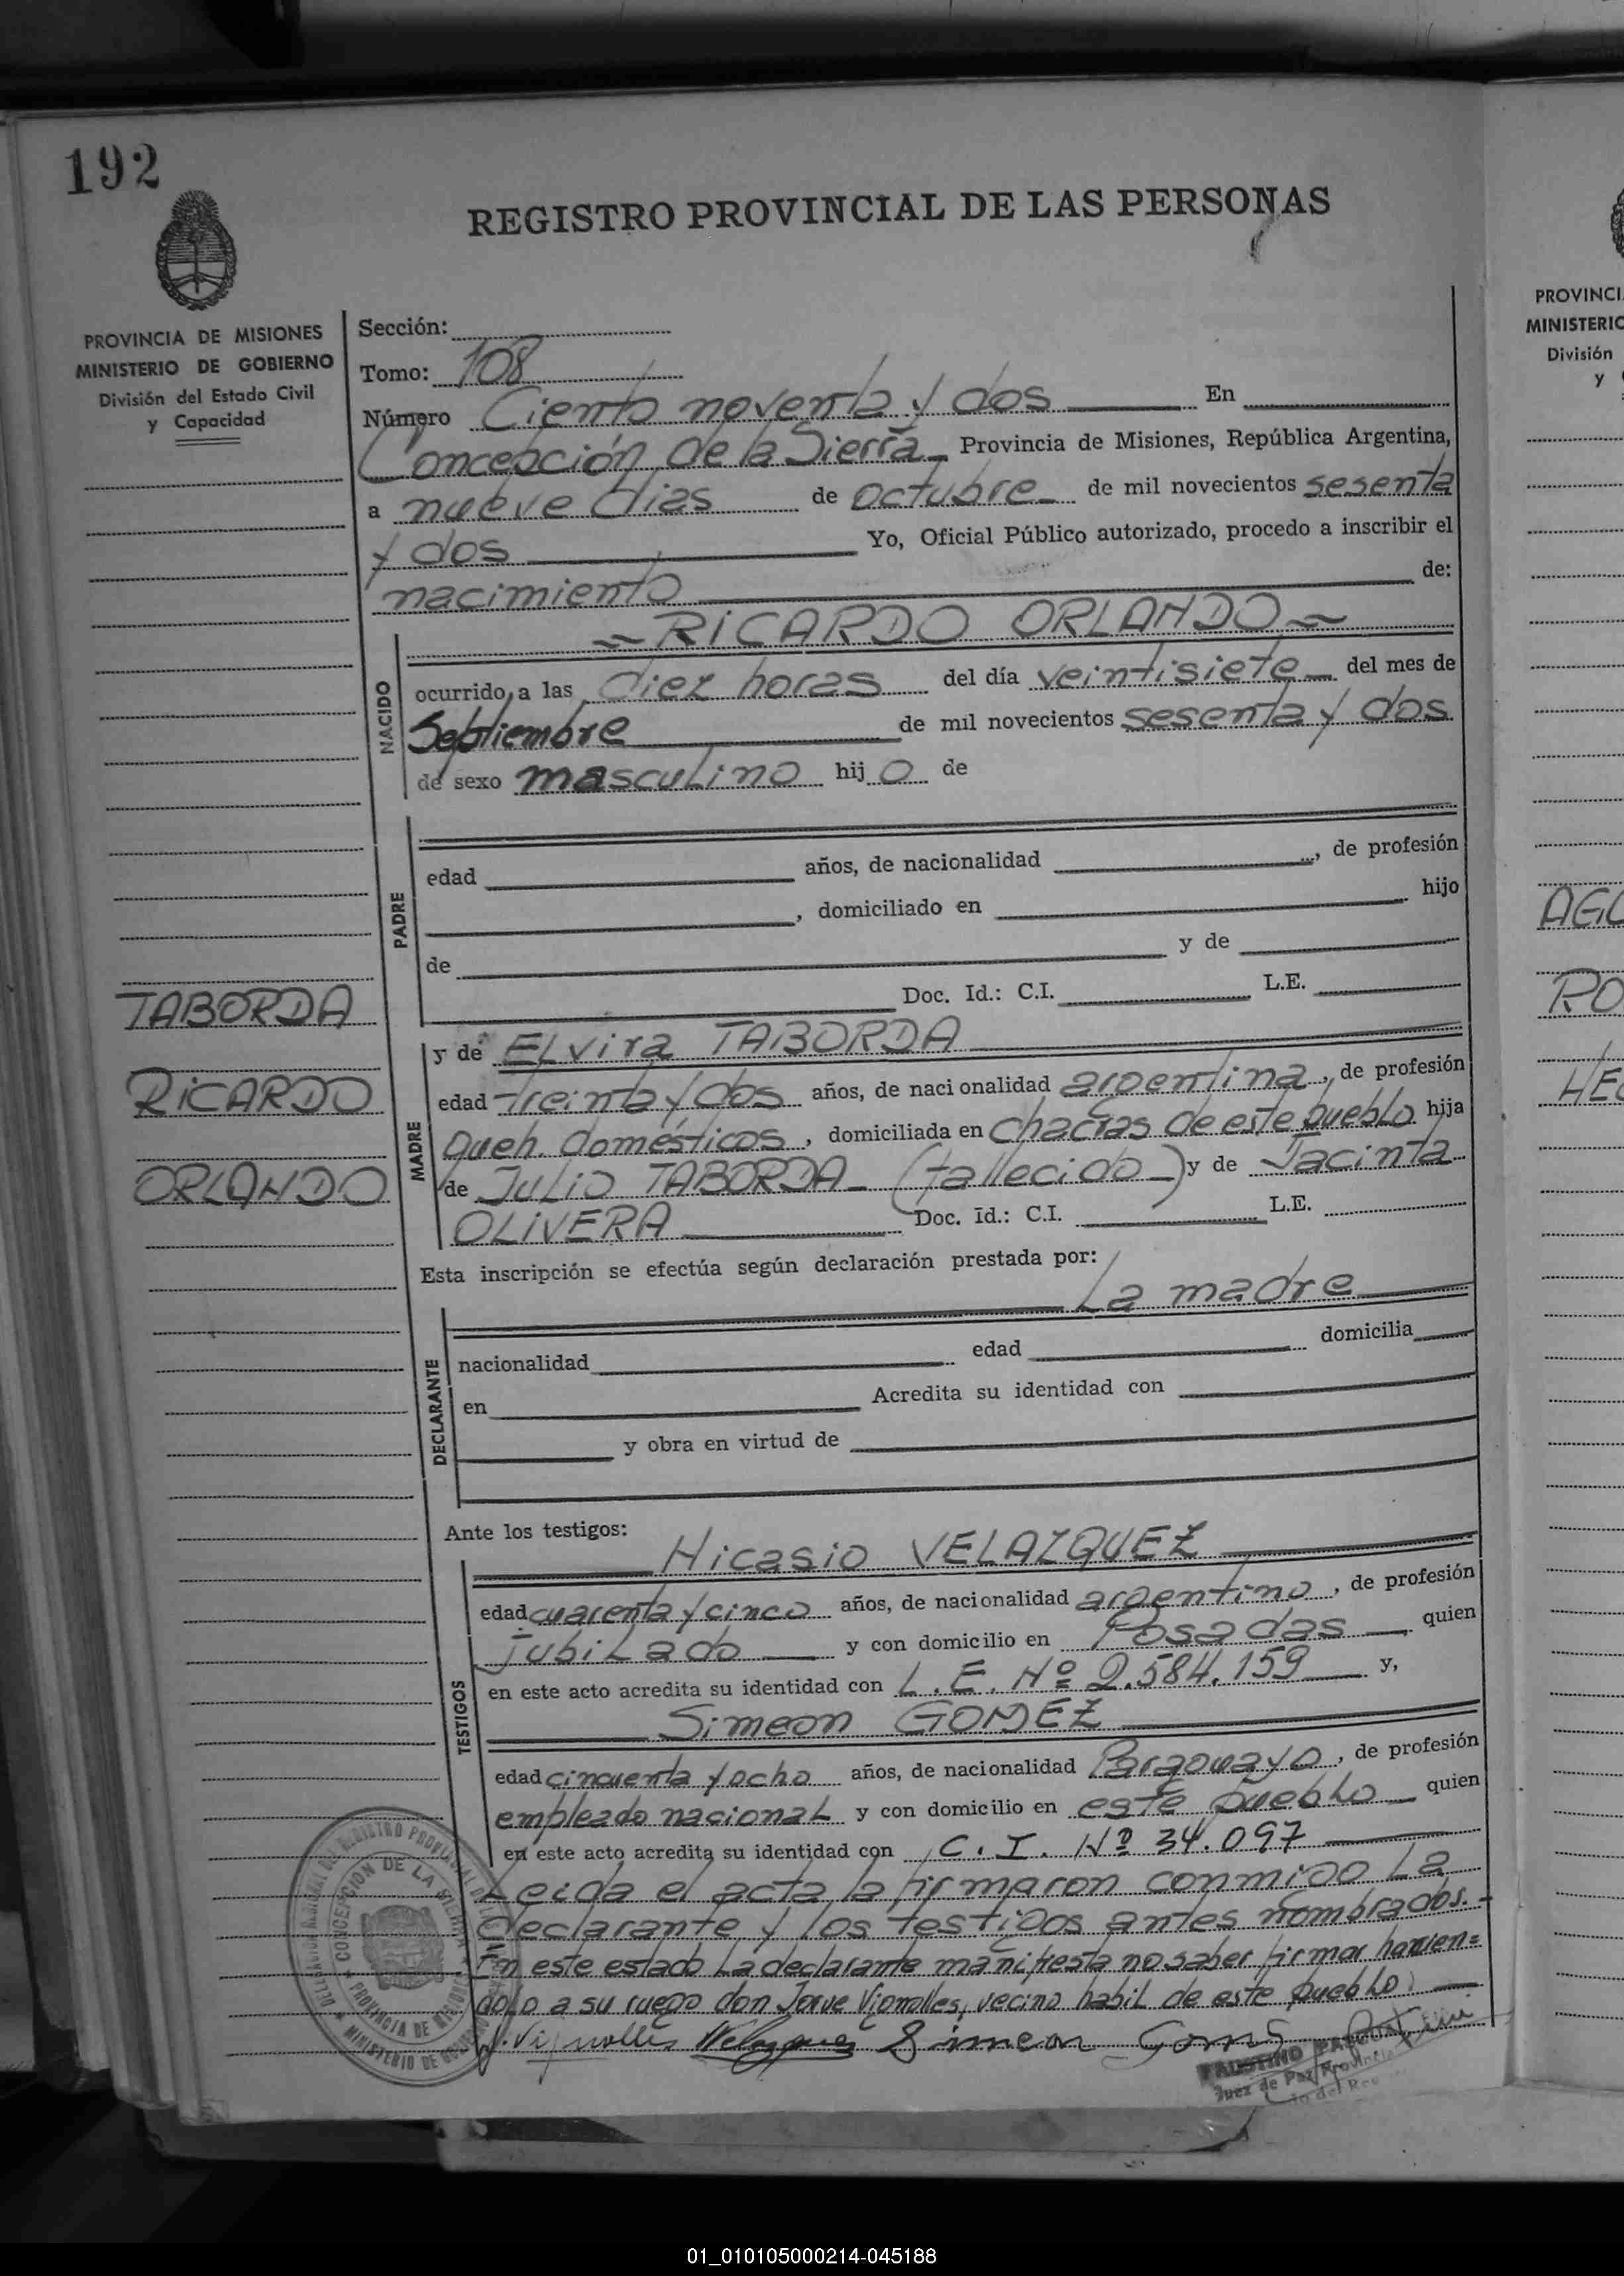 192
REGISTRO PROVINCIAL DE LAS PERSONAS
PROVINCIA DE MISIONES
MINISTERIO DE GOBIERNO
División del Estado Civil
y Capacidad
Sección:
Tomo: 108
Número Ciento noventa y dos En
Concepción de la Sierra Provincia de Misiones, República Argentina,
a nueve dias de octubre de mil novecientos sesenta
y dos Yo, Oficial Público autorizado, procedo a inscribir el
nacimiento de:
RICARDO ORLANDO
NACIDO
ocurrido a las diez horas del día veintisiete del mes de
Septiembre de mil novecientos sesenta y dos
de sexo masculino hijo de
PADRE
edad años, de nacionalidad , de profesión
, domiciliado en hijo
de y de
Doc. Id.: C.I. L.E.
TABORDA
RICARDO
ORLANDO
MADRE
y de Elvira TABORDA
edad treinta y dos años, de nacionalidad argentina, de profesión
queh. domésticos, domiciliada en chacras de este pueblo hija
de Julio TABORDA (fallecido) y de Jacinta
OLIVERA Doc. Id.: C.I. L.E.
Esta inscripción se efectúa según declaración prestada por:
La madre
DECLARANTE
nacionalidad edad domicilia
en Acredita su identidad con
y obra en virtud de
Ante los testigos:
TESTIGOS
Nicasio VELAZQUEZ
edad cuarenta y cinco años, de nacionalidad argentino, de profesión
jubilado y con domicilio en Posadas quien
en este acto acredita su identidad con L.E. Nº 2.584.159 y,
Simeon GOMEZ
edad cincuenta y ocho años, de nacionalidad Paraguayo, de profesión
empleado nacional y con domicilio en este pueblo quien
en este acto acredita su identidad con C.I. Nº 34.097
Leida el acta la firmaron conmigo la
declarante y los testigos antes nombrados.-
En este estado la declarante manifiesta no saber firmar havien=
dolo a su ruego don Jorge Vignolles, vecino habil de este pueblo
J. Vignolles Velazquez Simeon Gomes
FAUSTINO
Juez de Paz Provincial
CONCEPCION DE LA SIERRA
PROVINCIA DE MISIONES
MINISTERIO DE GOBIERNO
PROVINCI
MINISTERIO
División
y
AGU
RO
HE
01_010105000214-045188